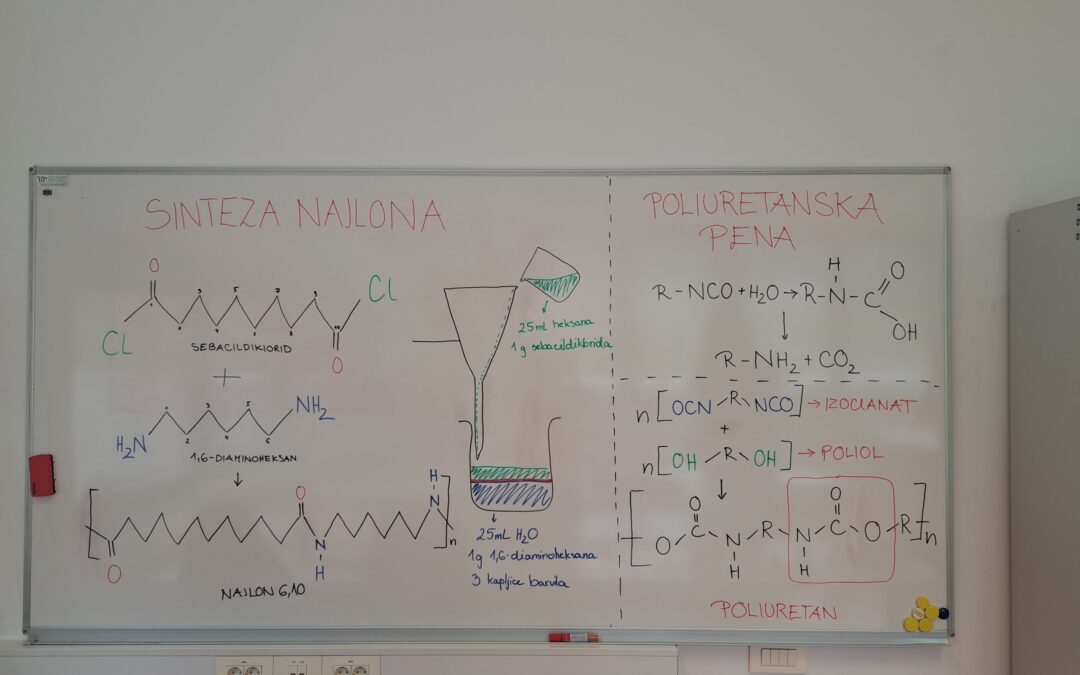 SINTEZA NAJLONA
O
Cl
1 2 3 4 5 6 7 8 9 10
Cl
O
SEBACILDIKLORID
+
H2N
1 2 3 4 5 6
NH2
1,6-DIAMINOHEKSAN
↓
[ O O N H H N ]n
NAJLON 6,10
25ml heksana
1g sebacildiklorida
25mL H2O
1g 1,6-diaminoheksana
3 kapljice barvila
POLIURETANSKA
PENA
R-NCO + H2O → R-N-C
H
O
OH
↓
R-NH2 + CO2
n[OCN-R-NCO] → IZOCIANAT
+
n[OH-R-OH] → POLIOL
↓
O O
[ O C N R N C O R ]n
H H
POLIURETAN